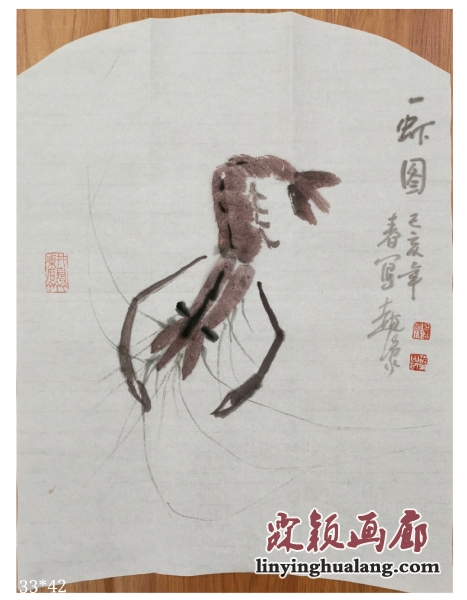 一虾图
己亥年
春写
霖颖画廊
linyinghualang.com
33*42